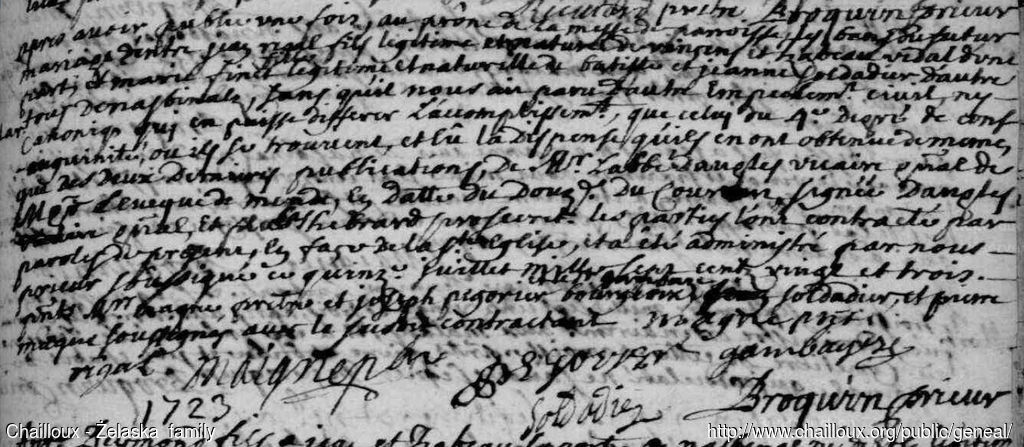 prêtre Broquin prieur
apres avoir publie une fois, au prône de la messe de parroisse, les bans du futur
mariage d'entre jean rigal fils legitime et naturel de vincens et izabeau vidal d'une
part; et marie finet legitime et naturelle de batiste et jeanne soldadier d'autre
tous de nasbinals, sans qu'il nous ait paru d'autre Empechemt. civil, ny
Canoniq qui en puisse differer l'accomplissemt., que celuy du 4e. degré de cons
anguinité, ou ils se trouvent, et lû la dispense qu'ils en ont obtenue de meme,
que des deux dernieres publications, de Mr. l'abbé dangles vicaire gnal de
Mgr. l'eveque de mende, en datte du douze. du Courant signée Dangles
vicaire gnal, Et hebrard prosecret. les parties l'ont contracté par
paroles de present, En face de la ste Eglise, et a été administré par nous
prieur soussigné ce quinze juillet mille sept cent vingt et trois.
pnts Mr. magne prêtre et joseph pigorier bourgeois, soldadier, et pierre
soussignés avec le contractant
rigal Maigne pbre pigorier gambaysse
1723 Soldadier Broquin prieur
Chailloux - Zelaska family
http://www.chailloux.org/public/geneal/